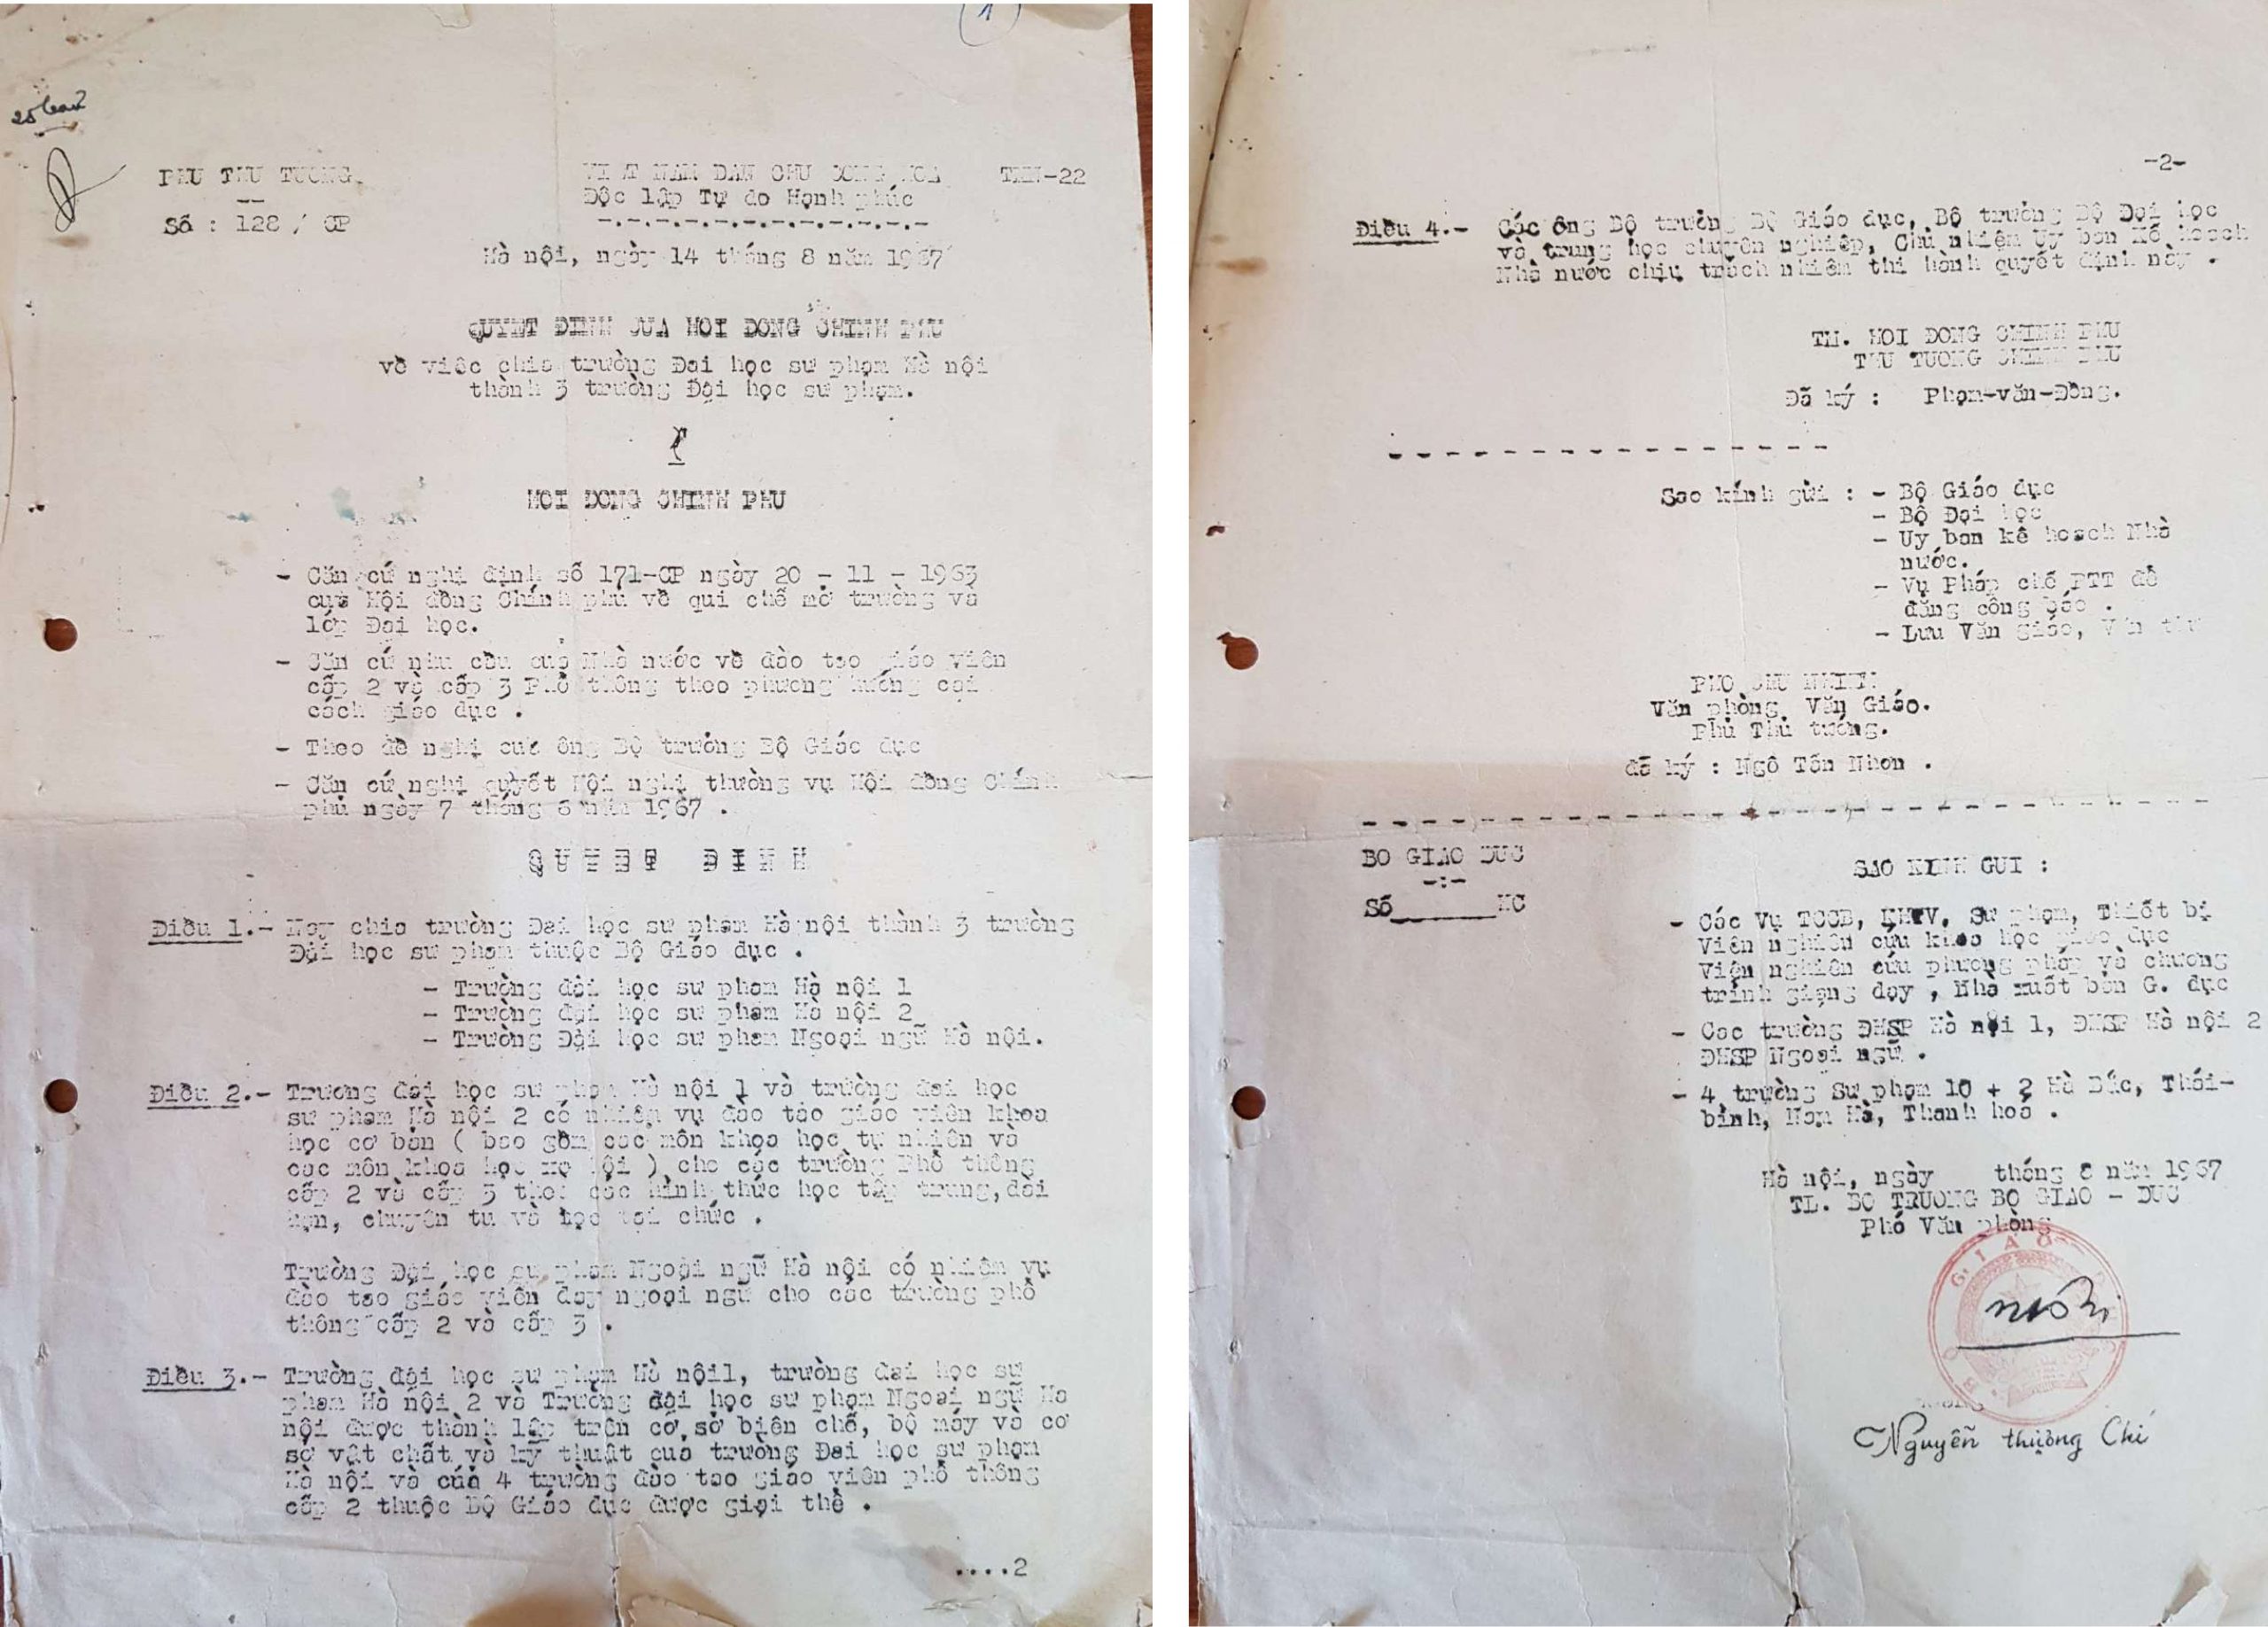 (1)
PHU THU TUONG
VIET NAM DAN CHU CONG HOA
TMN-22
--
Độc lập Tự do Hạnh phúc
Số : 128 / CP
-.-.-.-.-.-.-.-.-.-.-.-
Hà nội, ngày 14 tháng 8 năm 1967
QUYET DINH CUA HOI DONG CHINH PHU
về việc chia trường Đại học sư phạm Hà nội
thành 3 trường Đại học sư phạm.
HOI DONG CHINH PHU
- Căn cứ nghị định số 171-CP ngày 20 - 11 - 1963
của Hội đồng Chính phủ về qui chế mở trường và
lớp Đại học.
- Căn cứ nhu cầu của Nhà nước về đào tạo giáo viên
cấp 2 và cấp 3 Phổ thông theo phương hướng cải
cách giáo dục .
- Theo đề nghị của ông Bộ trưởng Bộ Giáo dục
- Căn cứ nghị quyết Hội nghị thường vụ Hội đồng Chính
phủ ngày 7 tháng 6 năm 1967 .
QUYET DINH
Điều 1.- Nay chia trường Đại học sư phạm Hà nội thành 3 trường
Đại học sư phạm thuộc Bộ Giáo dục .
- Trường đại học sư phạm Hà nội 1
- Trường đại học sư phạm Hà nội 2
- Trường Đại học sư phạm Ngoại ngữ Hà nội.
Điều 2.- Trương đại học sư phạm Hà nội 1 và trường đại học
sư phạm Hà nội 2 có nhiệm vụ đào tạo giáo viên khoa
học cơ bản ( bao gồm các môn khoa học tự nhiên và
các môn khoa học xạ hội ) cho các trường Phổ thông
cấp 2 và cấp 3 theo các hình thức học tập trung, dài
hạn, chuyên tu và học tại chức .
Trường Đại học sư phạm Ngoại ngữ Hà nội có nhiệm vụ
đào tạo giáo viên dạy ngoại ngữ cho các trường phổ
thông cấp 2 và cấp 3 .
Điều 3.- Trường đại học sư phạm Hà nội1, trường đại học sư
phạm Hà nội 2 và Trường đại học sư phạm Ngoại ngữ Hà
nội được thành lập trên cơ sở biên chế, bộ máy và cơ
sở vật chất và kỹ thuật của trường Đại học sư phạm
Hà nội và của 4 trường đào tạo giáo viên phổ thông
cấp 2 thuộc Bộ Giáo dục được giải thể .
....2
-2-
Điều 4.- Các ông Bộ trưởng Bộ Giáo dục, Bộ trưởng Bộ Đại học
và trung học chuyên nghiệp, Chủ nhiệm Uy ban Kế hoạch
Nhà nước chịu trách nhiệm thi hành quyết định này .
TM. HOI DONG CHINH PHU
THU TUONG CHINH PHU
Đã ký : Phạm-văn-Đồng.
- - - - - - - - - - - - - - - -
Sao kính gửi : - Bộ Giáo dục
- Bộ Đại học
- Uy ban kế hoạch Nhà
nước.
- Vụ Pháp chế PTT để
đăng công báo .
- Lưu Văn giáo, Văn thư
PHO CHU NHIEM
Văn phòng Văn Giáo.
Phủ Thủ tướng.
đã ký : Ngô Tấn Nhơn .
- - - - - - - - - - - - - - - - - - - - - - - - - - - - -
BO GIAO DUC
-:-
Số______HC
SAO KINH GUI :
- Các Vụ TCCB, KHTV, Sư phạm, Thiết bị
Viện nghiên cứu khoa học giáo dục
Viện nghiên cứu phương pháp và chương
trình giảng dạy , Nhà xuất bản G. dục
- Các trường ĐHSP Hà nội 1, ĐHSP Hà nội 2
ĐHSP Ngoại ngữ .
- 4 trường Sư phạm 10 + 2 Hà Bắc, Thái-
bình, Nam Hà, Thanh hoá .
Hà nội, ngày tháng 8 năm 1967
TL. BO TRUONG BO GIAO - DUC
Phó Văn phòng
BỘ GIÁO DỤC
Nguyễn thượng Chí